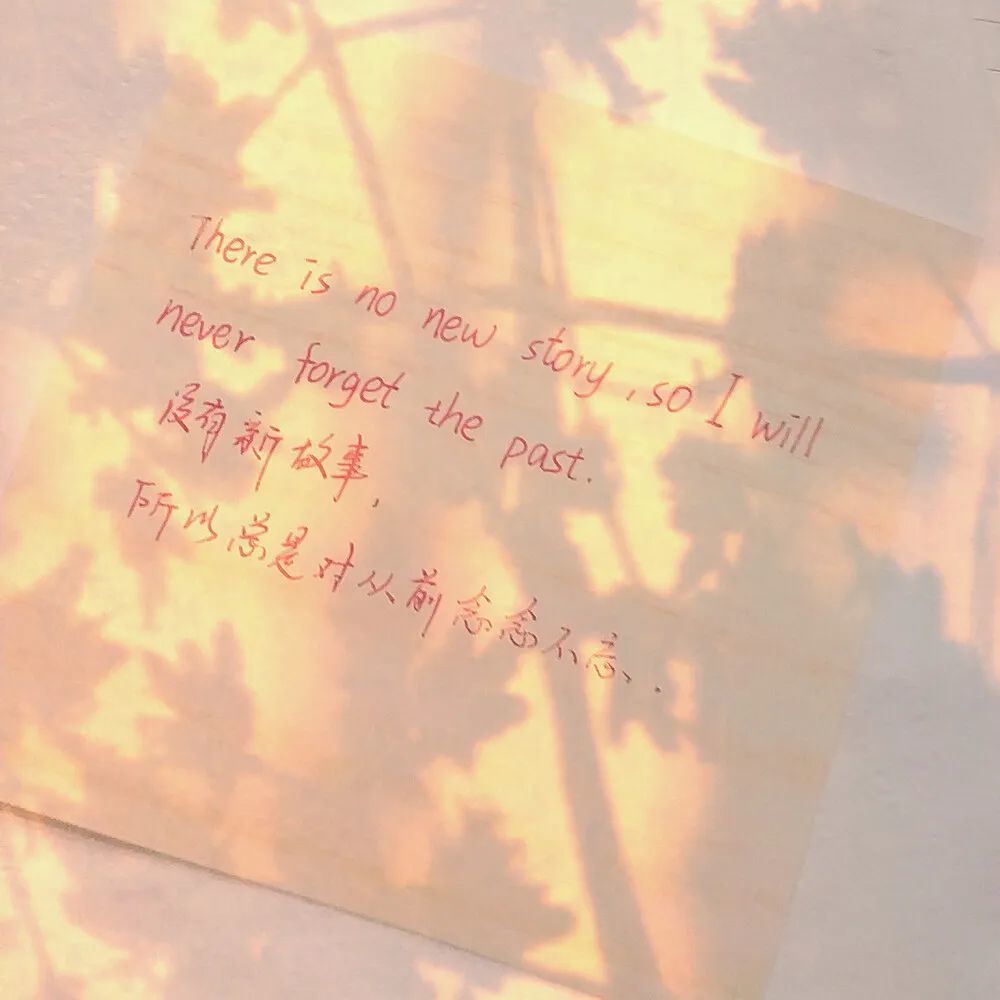 There is no new story, so I will
never forget the past.
没有新故事,
所以总是对从前念念不忘.